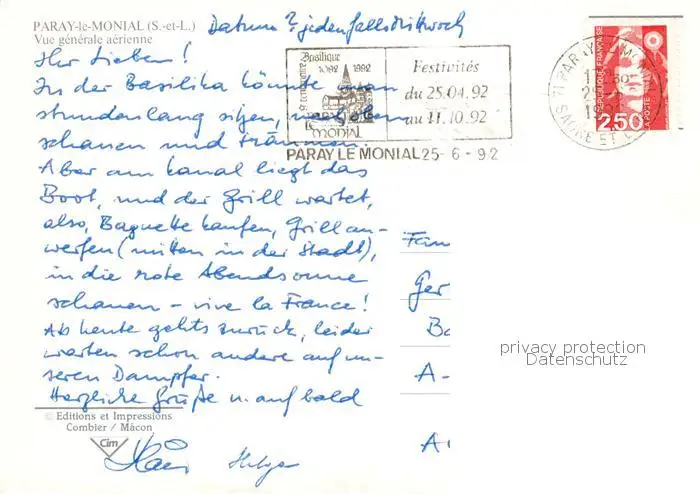 PARAY-le-MONIAL (S.-et-L.)
Vue générale aérienne
Datum? jedenfalls Mittwoch
Ihr Lieben!
In der Basilika könnte man
stundenlang sitzen, nach oben
schauen und träumen.
Aber am Kanal liegt das
Boot, und der Grill wartet,
also, Baguette kaufen, Grill an-
werfen (mitten in der Stadt),
in die rote Abendsonne
schauen - vive la France!
Ab heute gehts zurück, leider
warten schon andere auf un-
seren Dampfer.
Herzliche Grüße u. auf bald
Helga
Basilique
1092 1992
MONIAL
Festivités
du 25.04.92
au 11.10.92
PARAY LE MONIAL 25-6-92
RÉPUBLIQUE FRANÇAISE
2,50
LA POSTE
Fam
Ger
Ba
A-
A
privacy protection
Datenschutz
© Editions et Impressions
Combier / Mâcon
Cim